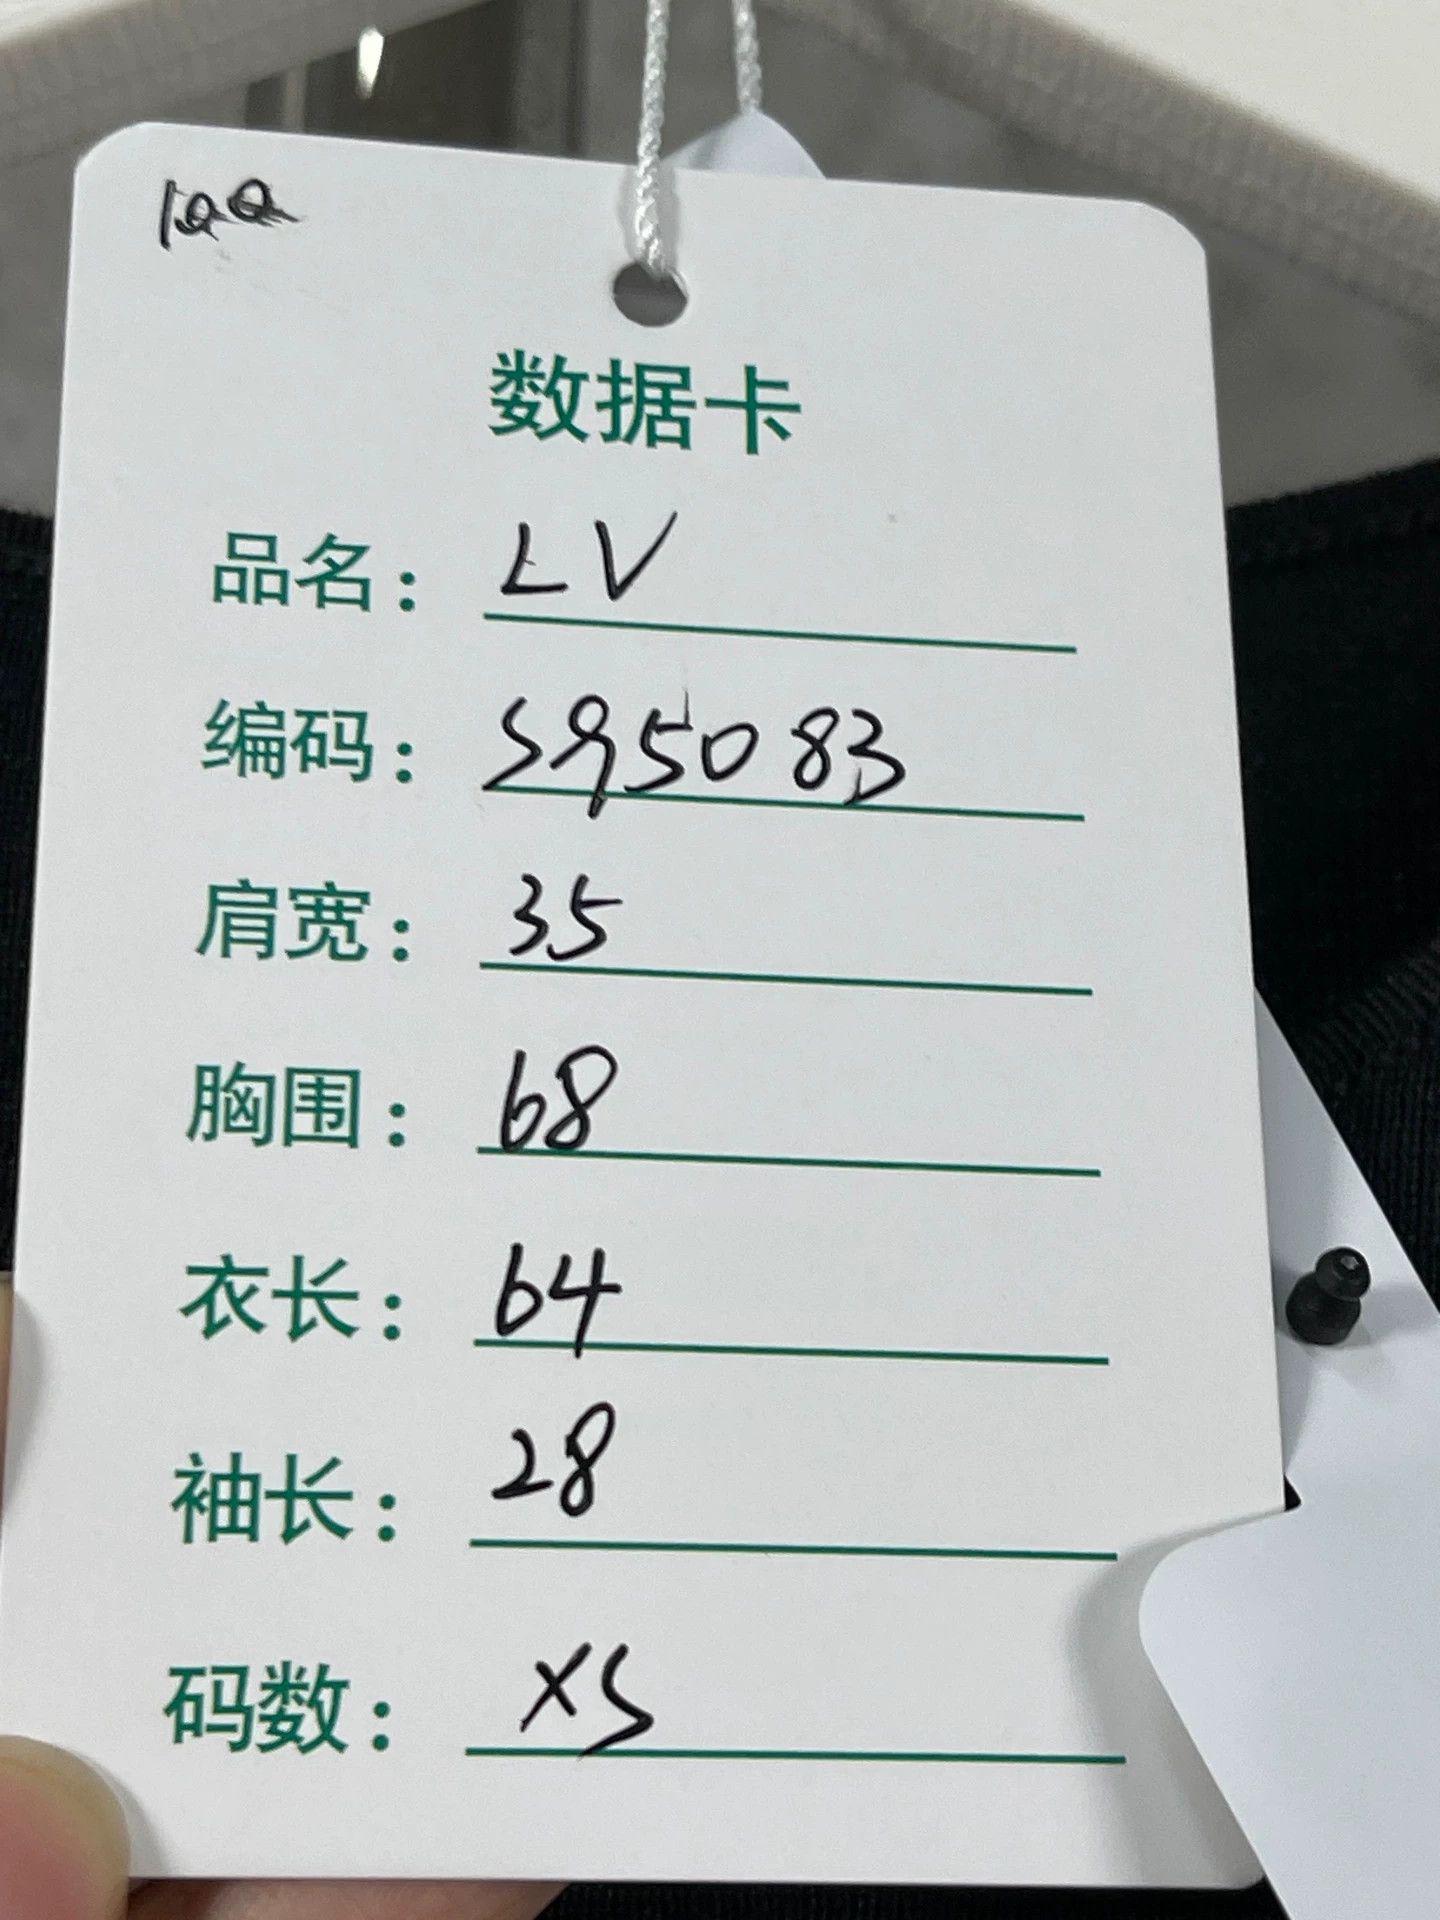 100
数据卡
品名: LV
编码: S95083
肩宽: 35
胸围: 68
衣长: 64
袖长: 28
码数: XS